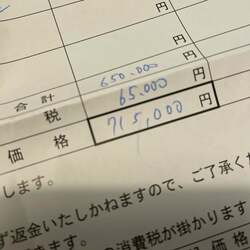 円
円
円
合計 650.000 円
税 65.000 円
価格 715,000 円
します。
ず返金いたしかねますので、ご了承くだ
の消費税が掛かります
価格